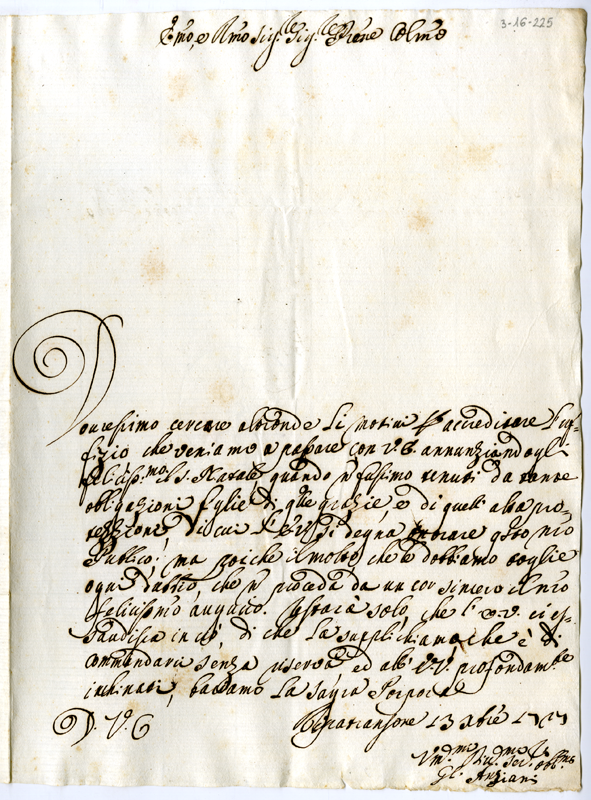 3-16-225
Emo, e Rmo Sig. Sig. Prone Colmo
Douressimo cercare altronde li motivi p accreditare l'uf-
fizio che veniamo a passare con V.E. annunziandogli
felicissma il S. Natale quando n fussimo tenuti da tante
obligazioni figlie di qlle grazie, e di quell'alta pro-
tezzione, di cui l'E.V. si degna onorare qsto nro
Publico; ma poiche il molto che le dobbiamo toglie
ogni dubbio, che n proceda da un cor sincero il nro
felicissimo augurio. Restarà solo, che l'E.V. ci es-
saudisca in ciò, di che la supplichiamo, che è di
commandarci senza riserva ed all'E.V. profondamte
inchinati, baciamo la sagra Porpora
D. V. E.
13 Xbre 17
Vmi Diumi Seri obbmi
Gl. Anziani